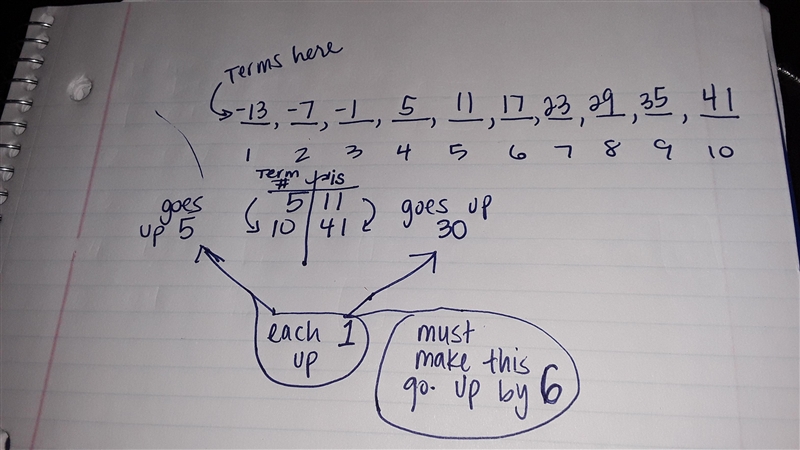 Terms here
-13, -7, -1, 5, 11, 17, 23, 29, 35, 41
1 2 3 4 5 6 7 8 9 10
Term is
#
goes 5 11 goes up
up 5 10 41 30
each 1
up
must
make this
go. up by 6